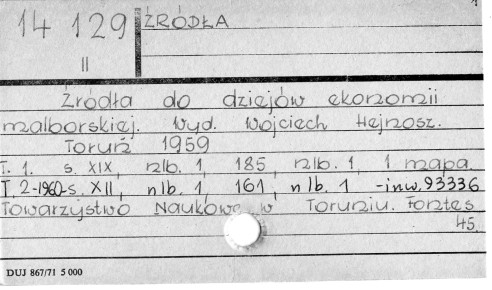 14 129
II
ŹRÓDŁA
Źródła do dziejów ekonomii
malborskiej. Wyd. Wojciech Hejnosz.
Toruń 1959
T. 1. s. XIX, nlb. 1, 185, nlb. 1, 1 mapa.
T. 2-1960-s. XII, nlb. 1, 161, nlb. 1 -inw. 93336
Towarzystwo Naukowe w Toruniu. Fontes
45.
DUJ 867/71 5 000